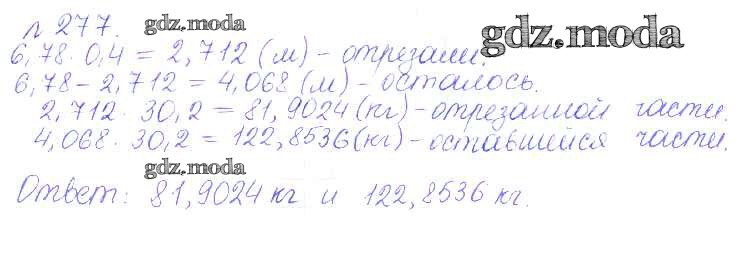 № 277. gdz.moda gdz.moda
6,78 · 0,4 = 2,712 (м) - отрезали.
6,78 - 2,712 = 4,068 (м) - осталось.
2,712 · 30,2 = 81,9024 (кг) - отрезанной части.
4,068 · 30,2 = 122,8536 (кг) - оставшейся части.
gdz.moda
Ответ: 81,9024 кг и 122,8536 кг.